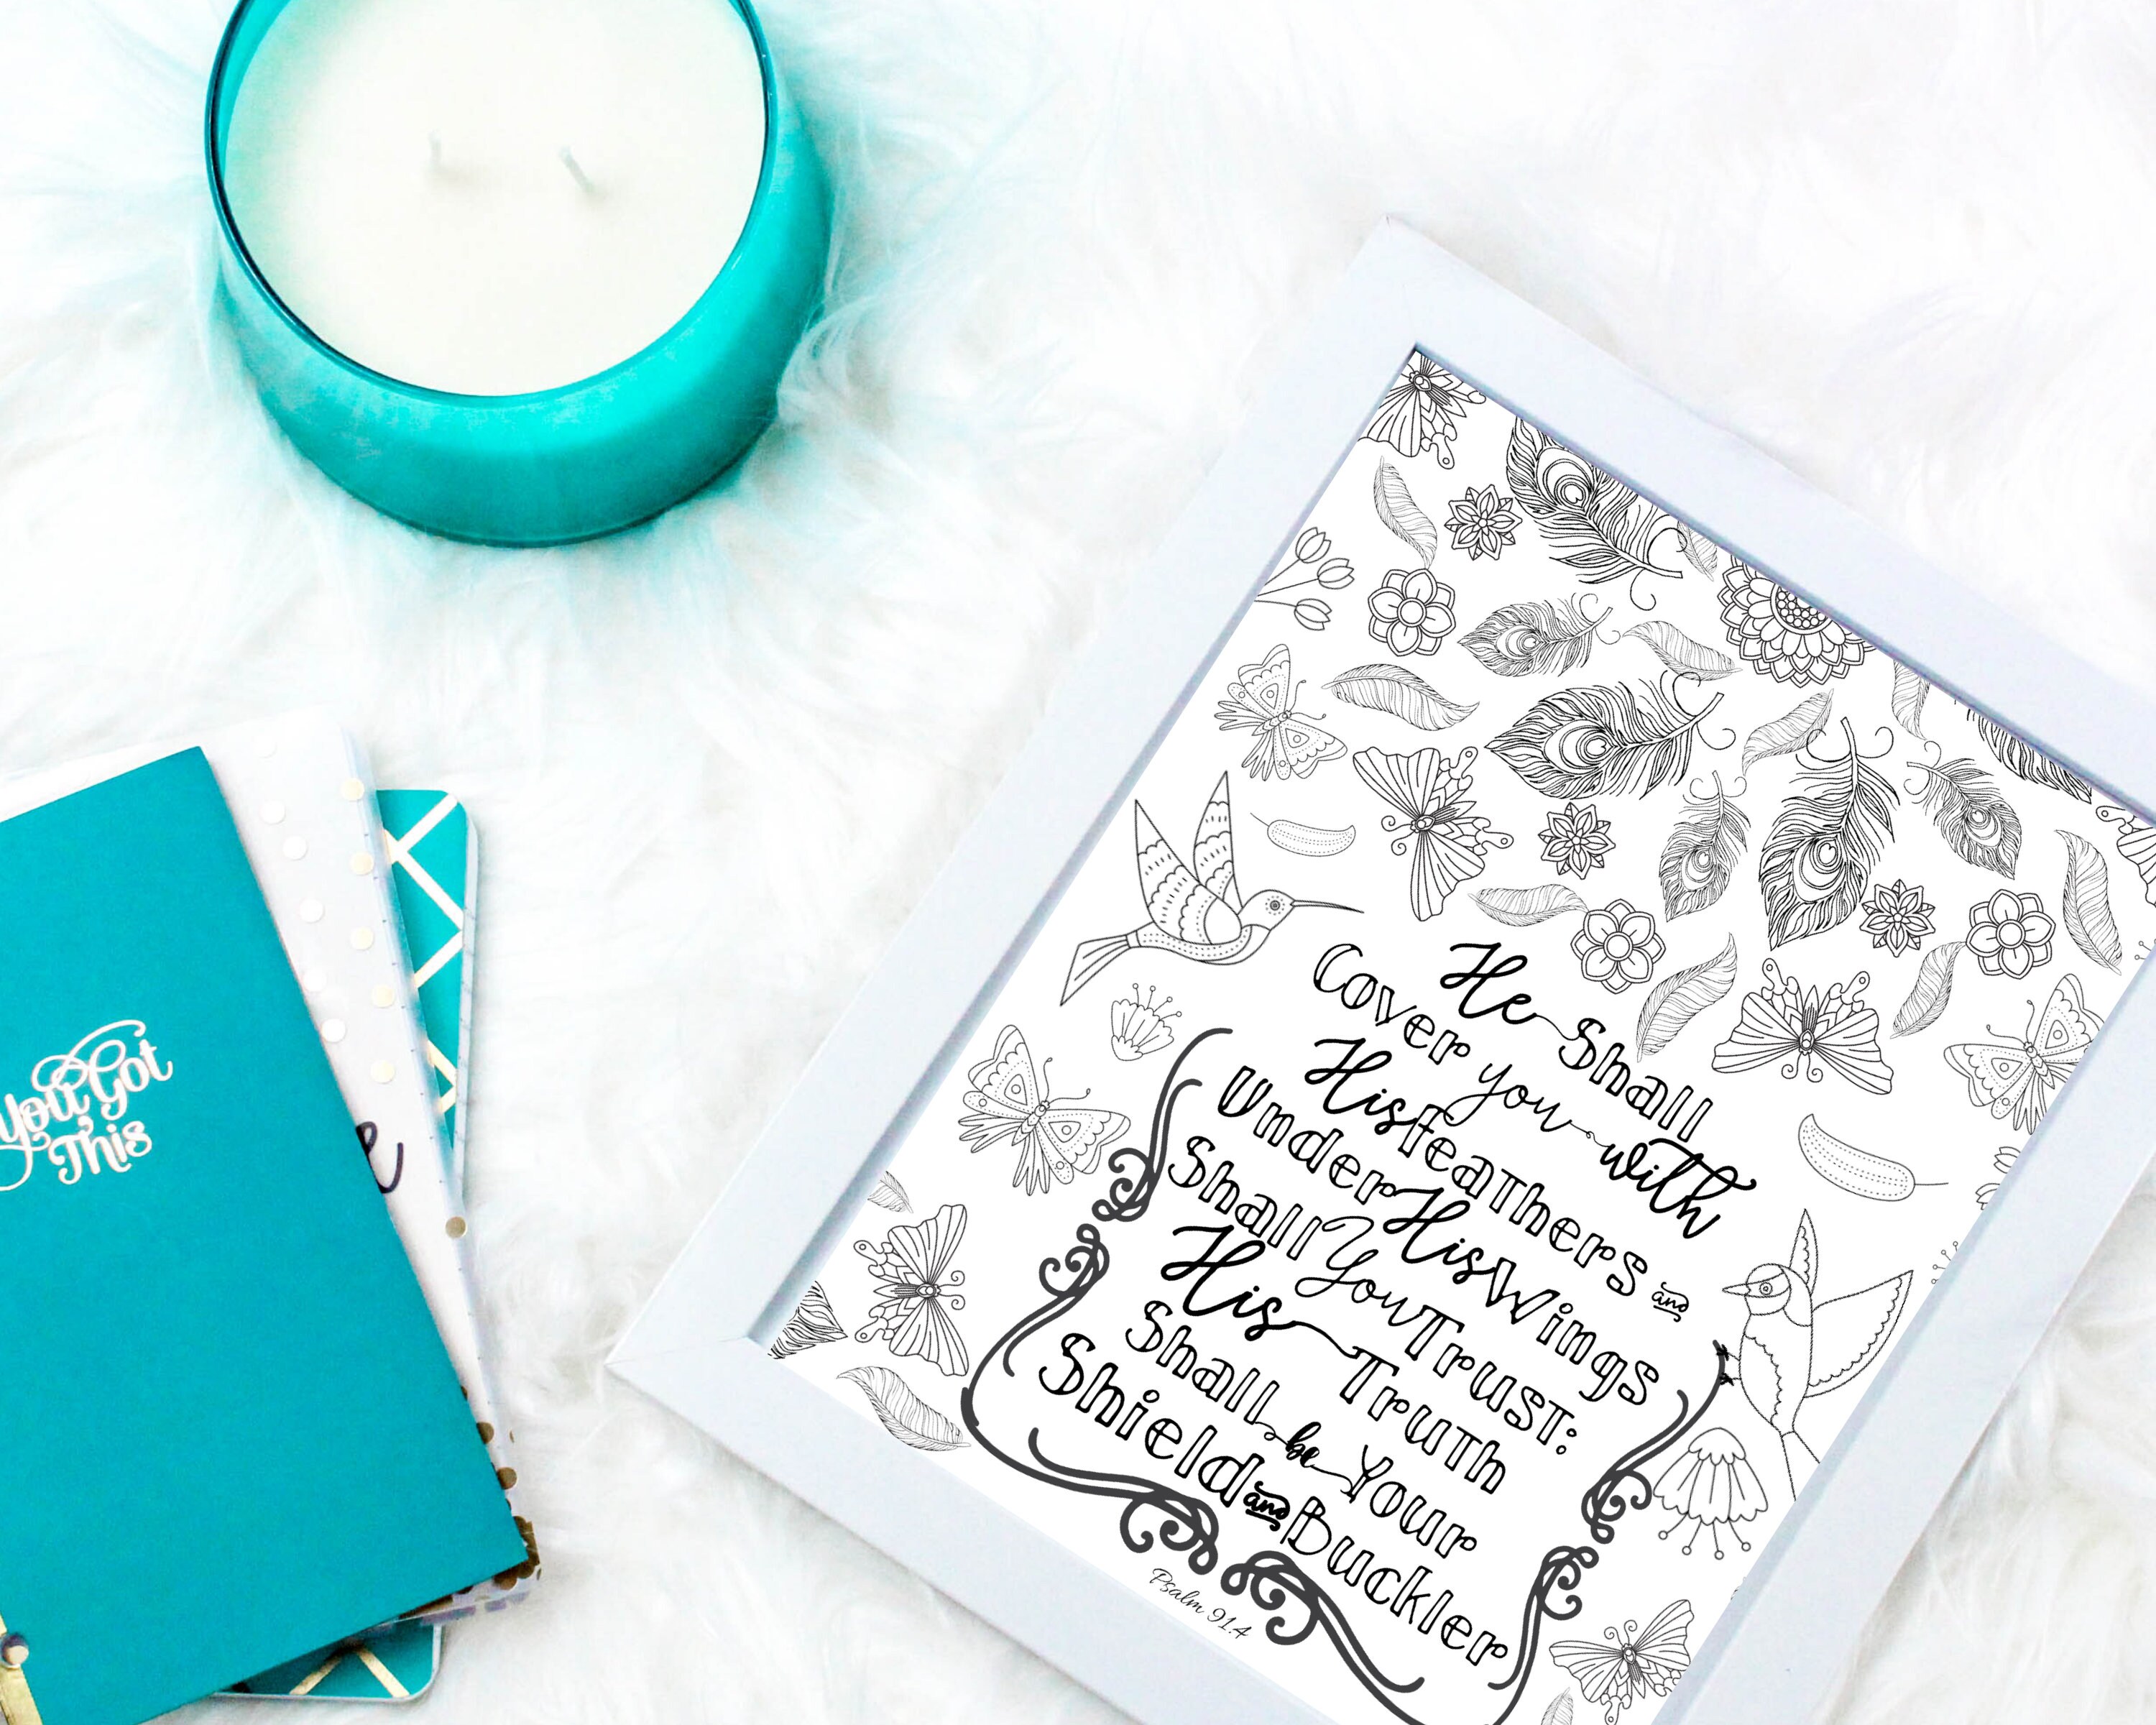 You Got
This
e
He Shall
Cover you with
His feathers and
Under His Wings
Shall You Trust:
His Truth
Shall be Your
Shield and Buckler
Psalm 91.4